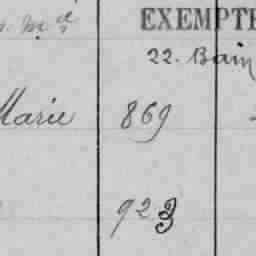 EXEMPTE
22. Bain
Marie 869
923